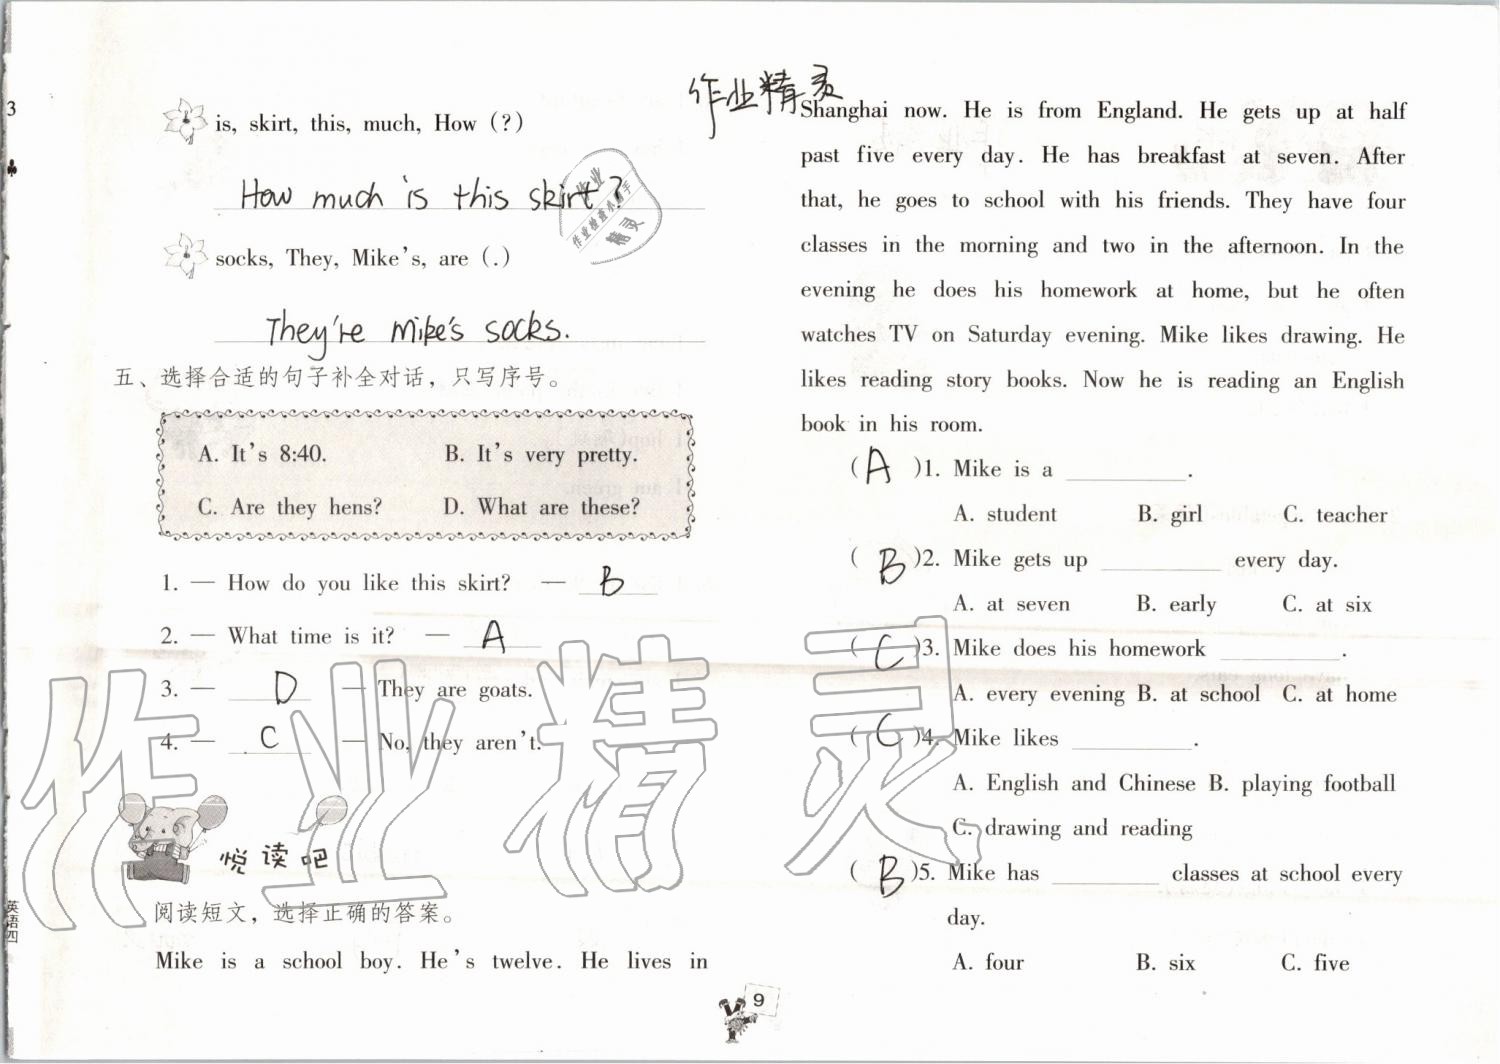 3
♣
is, skirt, this, much, How (?)
How much is this skirt?
socks, They, Mike's, are (.)
They're Mike's socks.
五、选择合适的句子补全对话，只写序号。
A. It's 8:40. B. It's very pretty.
C. Are they hens? D. What are these?
1. — How do you like this skirt? — B
2. — What time is it? — A
3. — D — They are goats.
4. — C — No, they aren't.
悦读吧
阅读短文，选择正确的答案。
Mike is a school boy. He's twelve. He lives in
英语四
作业精灵
Shanghai now. He is from England. He gets up at half
past five every day. He has breakfast at seven. After
that, he goes to school with his friends. They have four
classes in the morning and two in the afternoon. In the
evening he does his homework at home, but he often
watches TV on Saturday evening. Mike likes drawing. He
likes reading story books. Now he is reading an English
book in his room.
( A )1. Mike is a ________.
A. student B. girl C. teacher
( B )2. Mike gets up ________ every day.
A. at seven B. early C. at six
( C )3. Mike does his homework ________.
A. every evening B. at school C. at home
( C )4. Mike likes ________.
A. English and Chinese B. playing football
C. drawing and reading
( B )5. Mike has ________ classes at school every
day.
A. four B. six C. five
9
作业
作业检查小助手
精灵
作业精灵